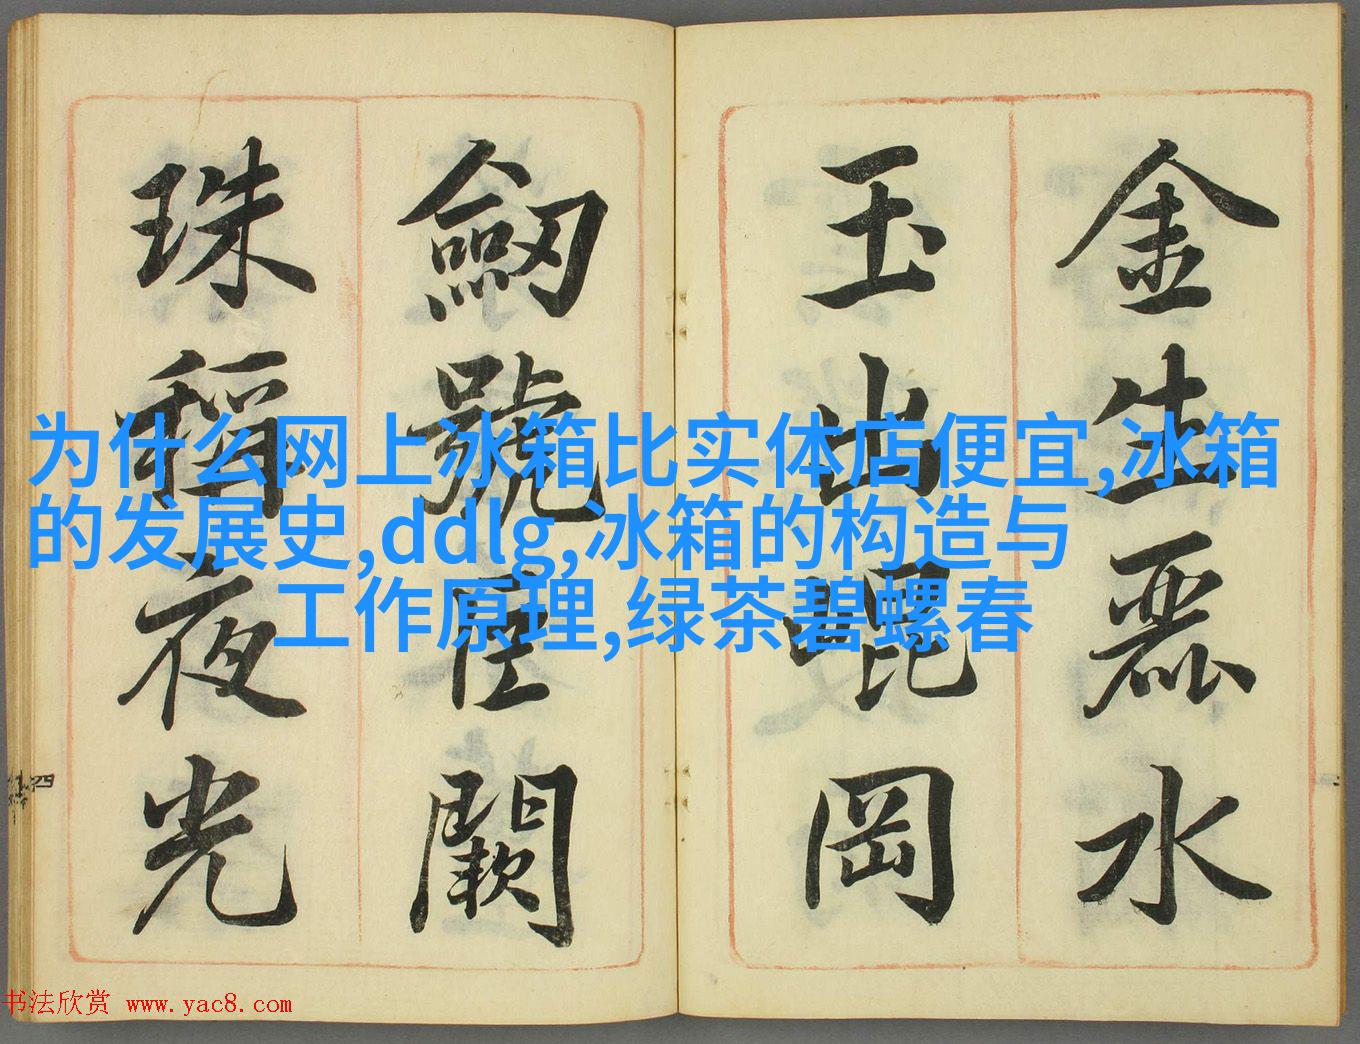 金生麗水
玉出崐岡
劒號巨闕
珠稱夜光
为什么网上冰箱比实体店便宜,冰箱
的发展史,ddlg,冰箱的构造与
工作原理,绿茶碧螺春
四
书法欣赏 www.yac8.com